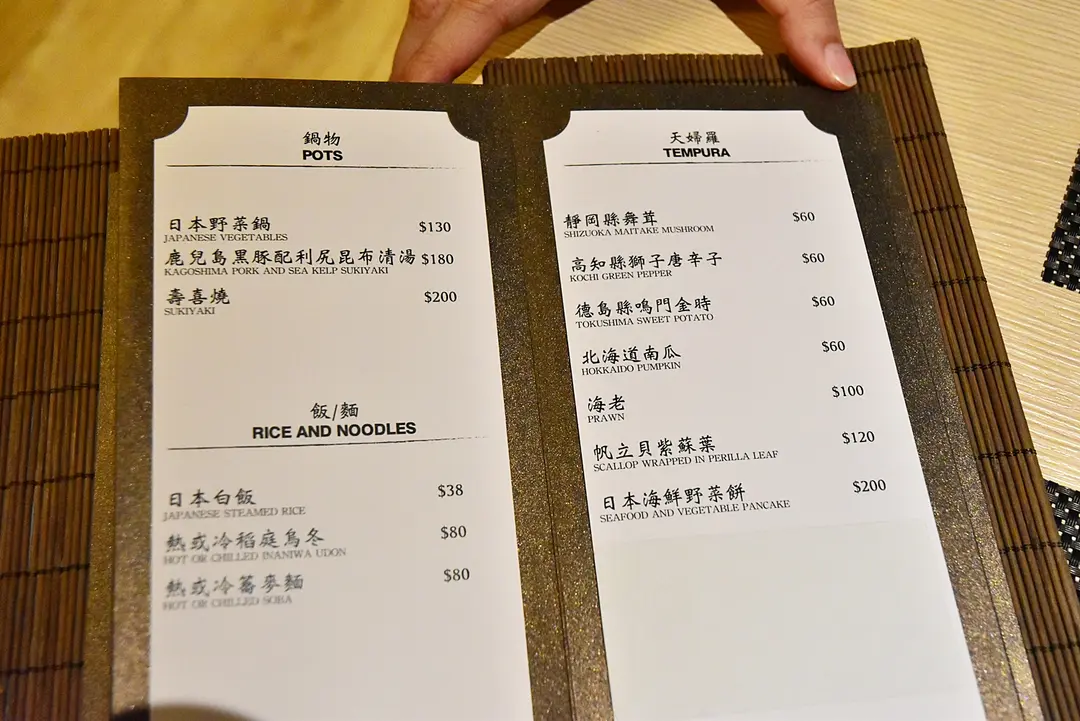 鍋物
POTS
日本野菜鍋 $130
JAPANESE VEGETABLES
鹿兒島黑豚配利尻昆布清湯 $180
KAGOSHIMA PORK AND SEA KELP SUKIYAKI
壽喜燒 $200
SUKIYAKI
飯/麵
RICE AND NOODLES
日本白飯 $38
JAPANESE STEAMED RICE
熱或冷稻庭烏冬 $80
HOT OR CHILLED INANIWA UDON
熱或冷蕎麥麵 $80
HOT OR CHILLED SOBA
天婦羅
TEMPURA
靜岡縣舞茸 $60
SHIZUOKA MAITAKE MUSHROOM
高知縣獅子唐辛子 $60
KOCHI GREEN PEPPER
德島縣鳴門金時 $60
TOKUSHIMA SWEET POTATO
北海道南瓜 $60
HOKKAIDO PUMPKIN
海老 $100
PRAWN
帆立貝紫蘇葉 $120
SCALLOP WRAPPED IN PERILLA LEAF
日本海鮮野菜餅 $200
SEAFOOD AND VEGETABLE PANCAKE